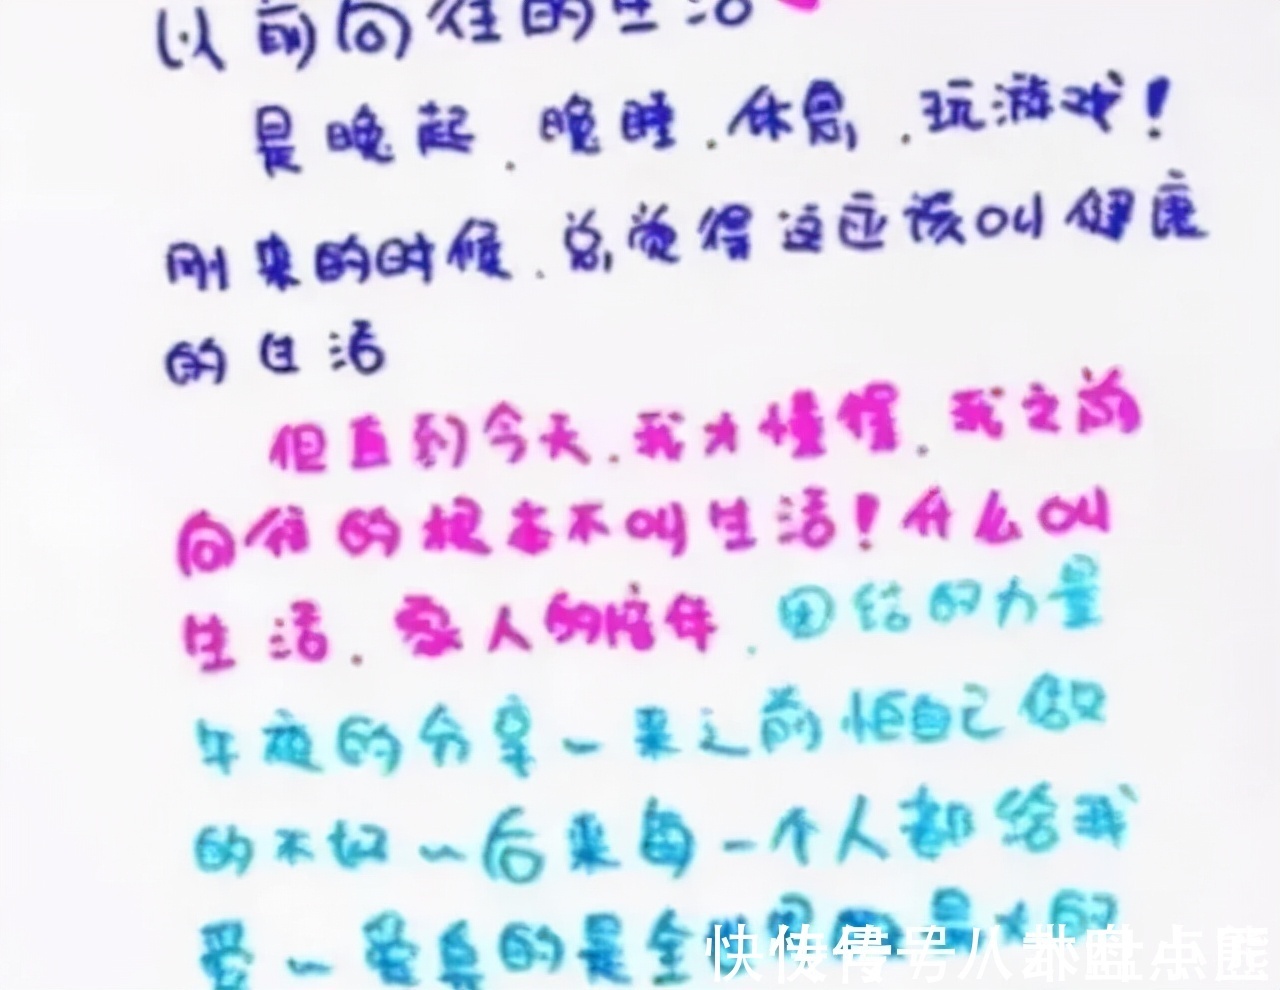 以前向往的生活
是晚起.晚睡.休息.玩游戏!
刚来的时候.总觉得这应该叫健康
的生活
但直到今天.我才懂得.我之前
向往的根本不叫生活!什么叫
生活.家人的陪伴.团结的力量
午夜的分享~来之前怕自己做
的不好~后来每一个人都给我
爱~爱真的是全世界最大的
快传号/